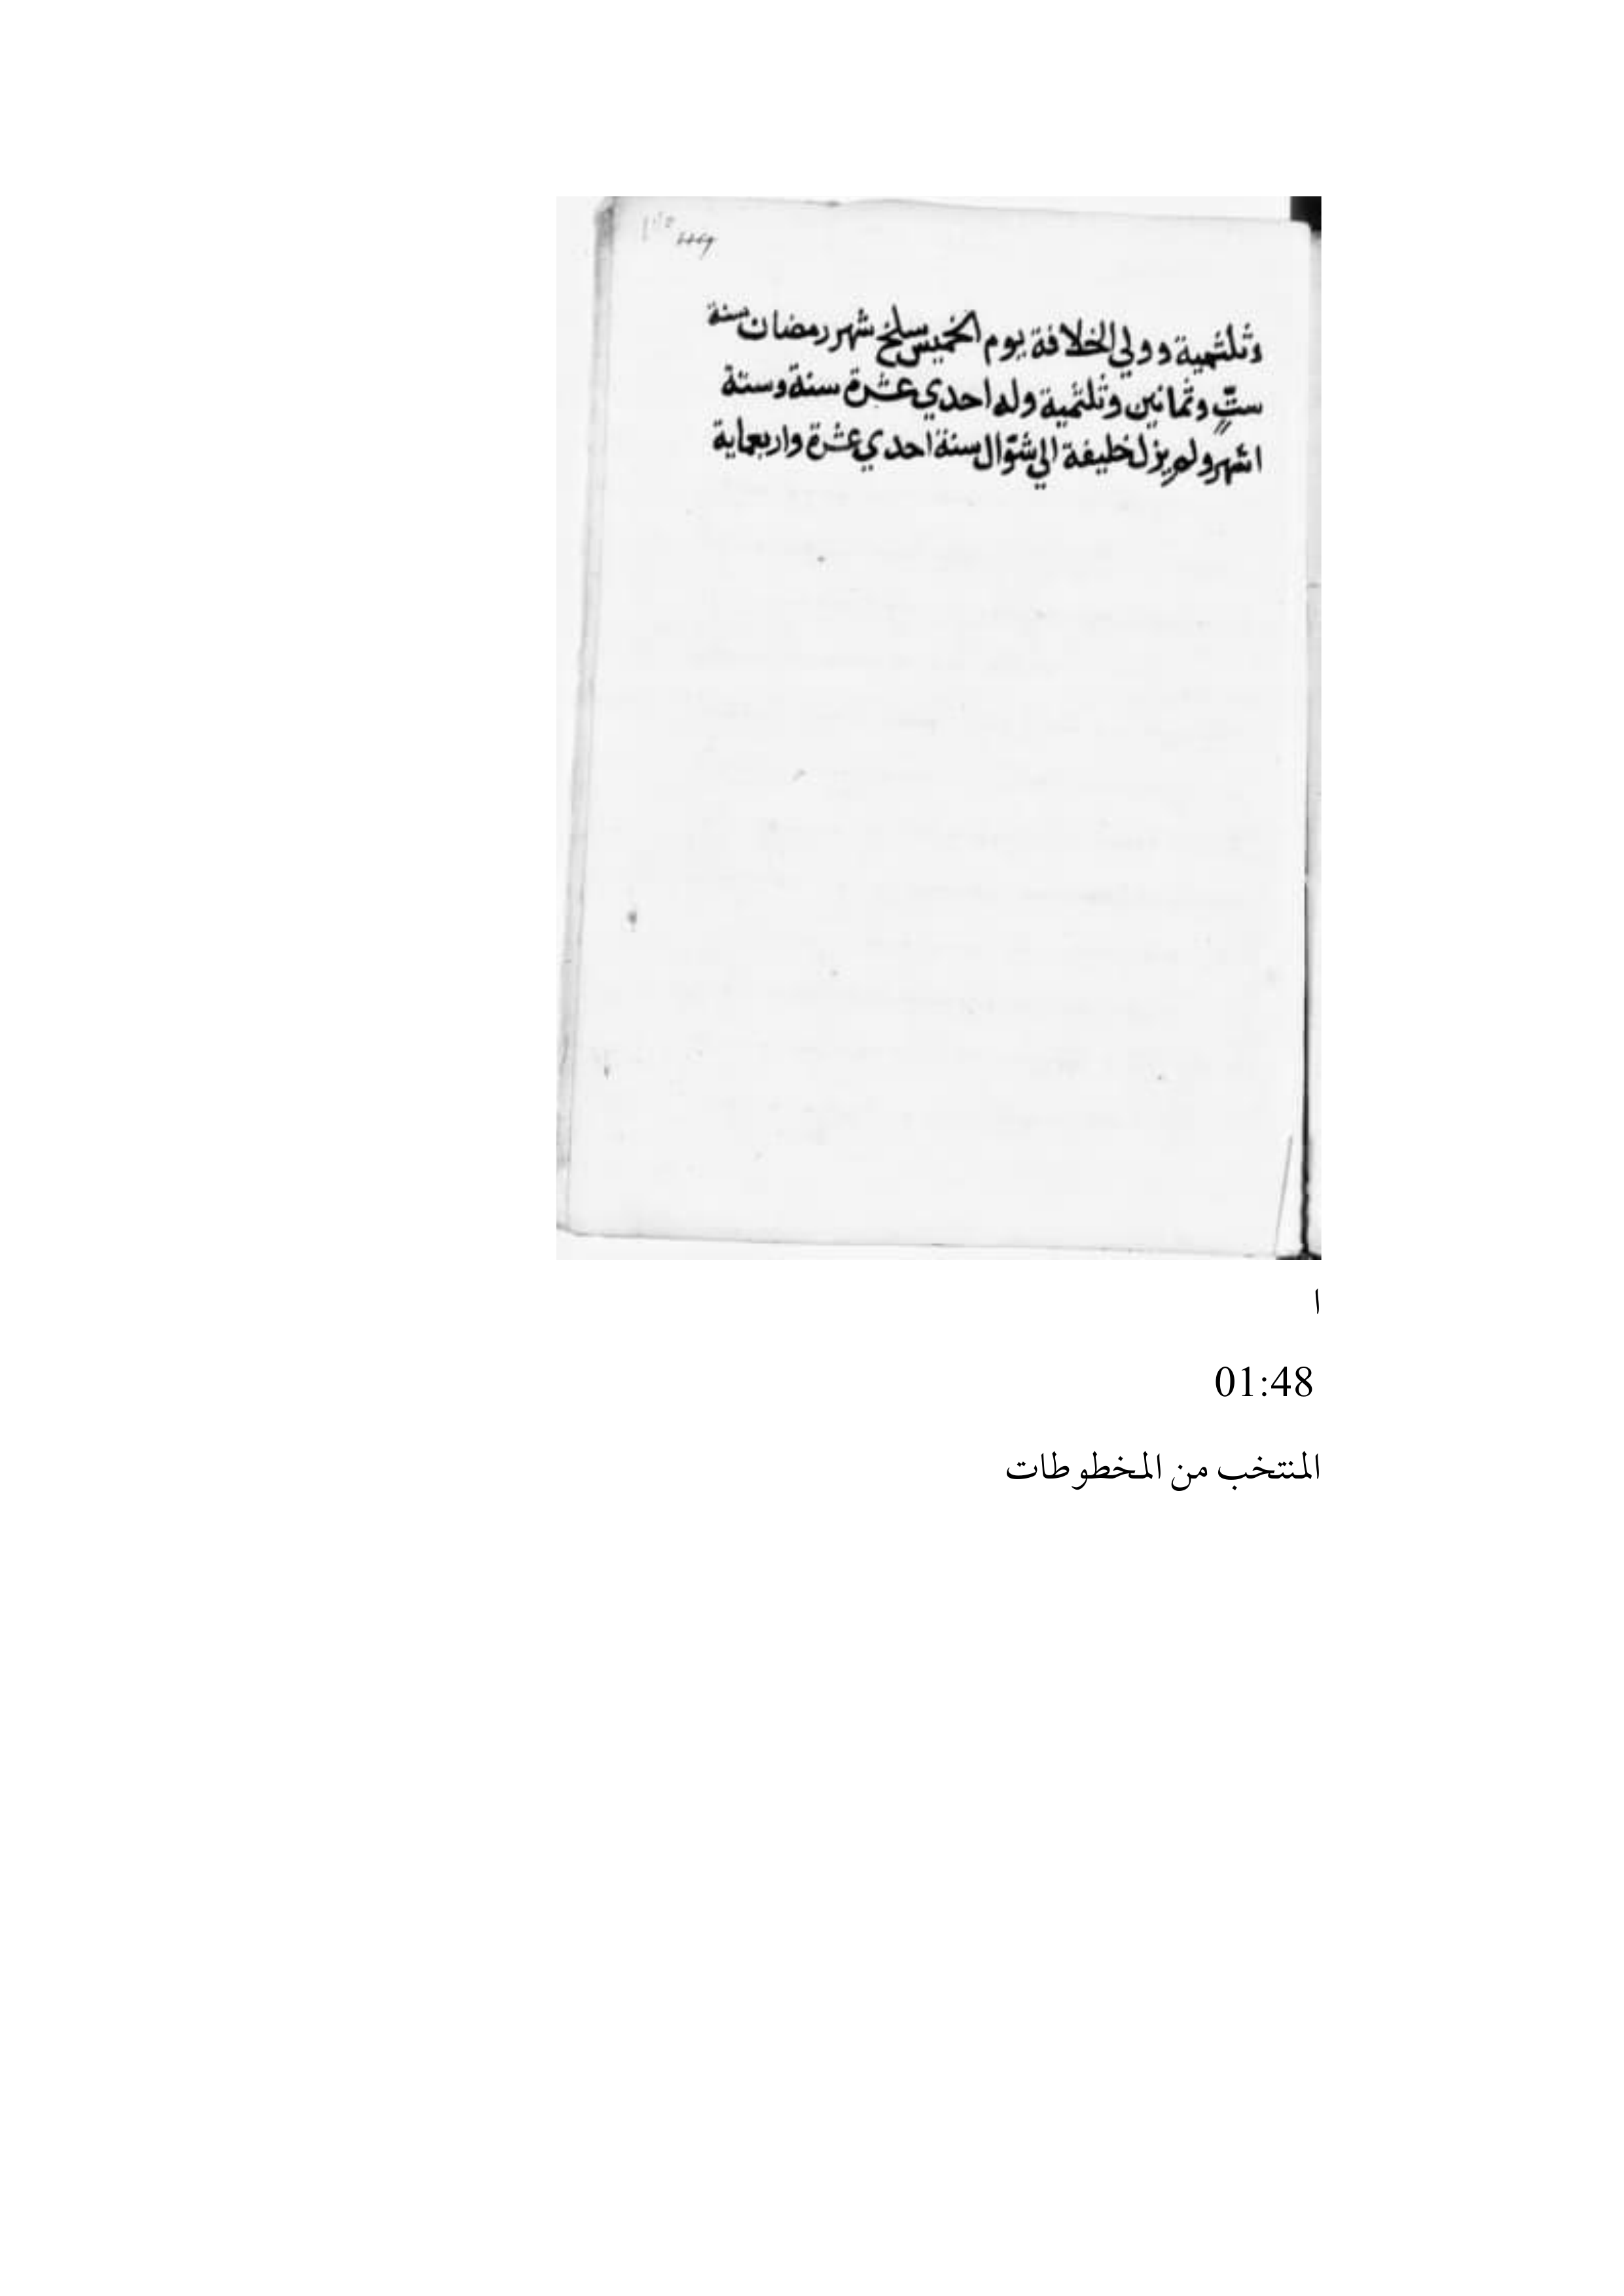 وثلثمية وولي الخلافة يوم الخميس سلخ شهر رمضان سنة
ستٍّ وثمانين وثلثمية وله احدي عشرة سنة وستة
اشهر ولم يزل خليفة الي شوّال سنة احدي عشرة واربعماية
ا
01:48
المنتخب من المخطوطات